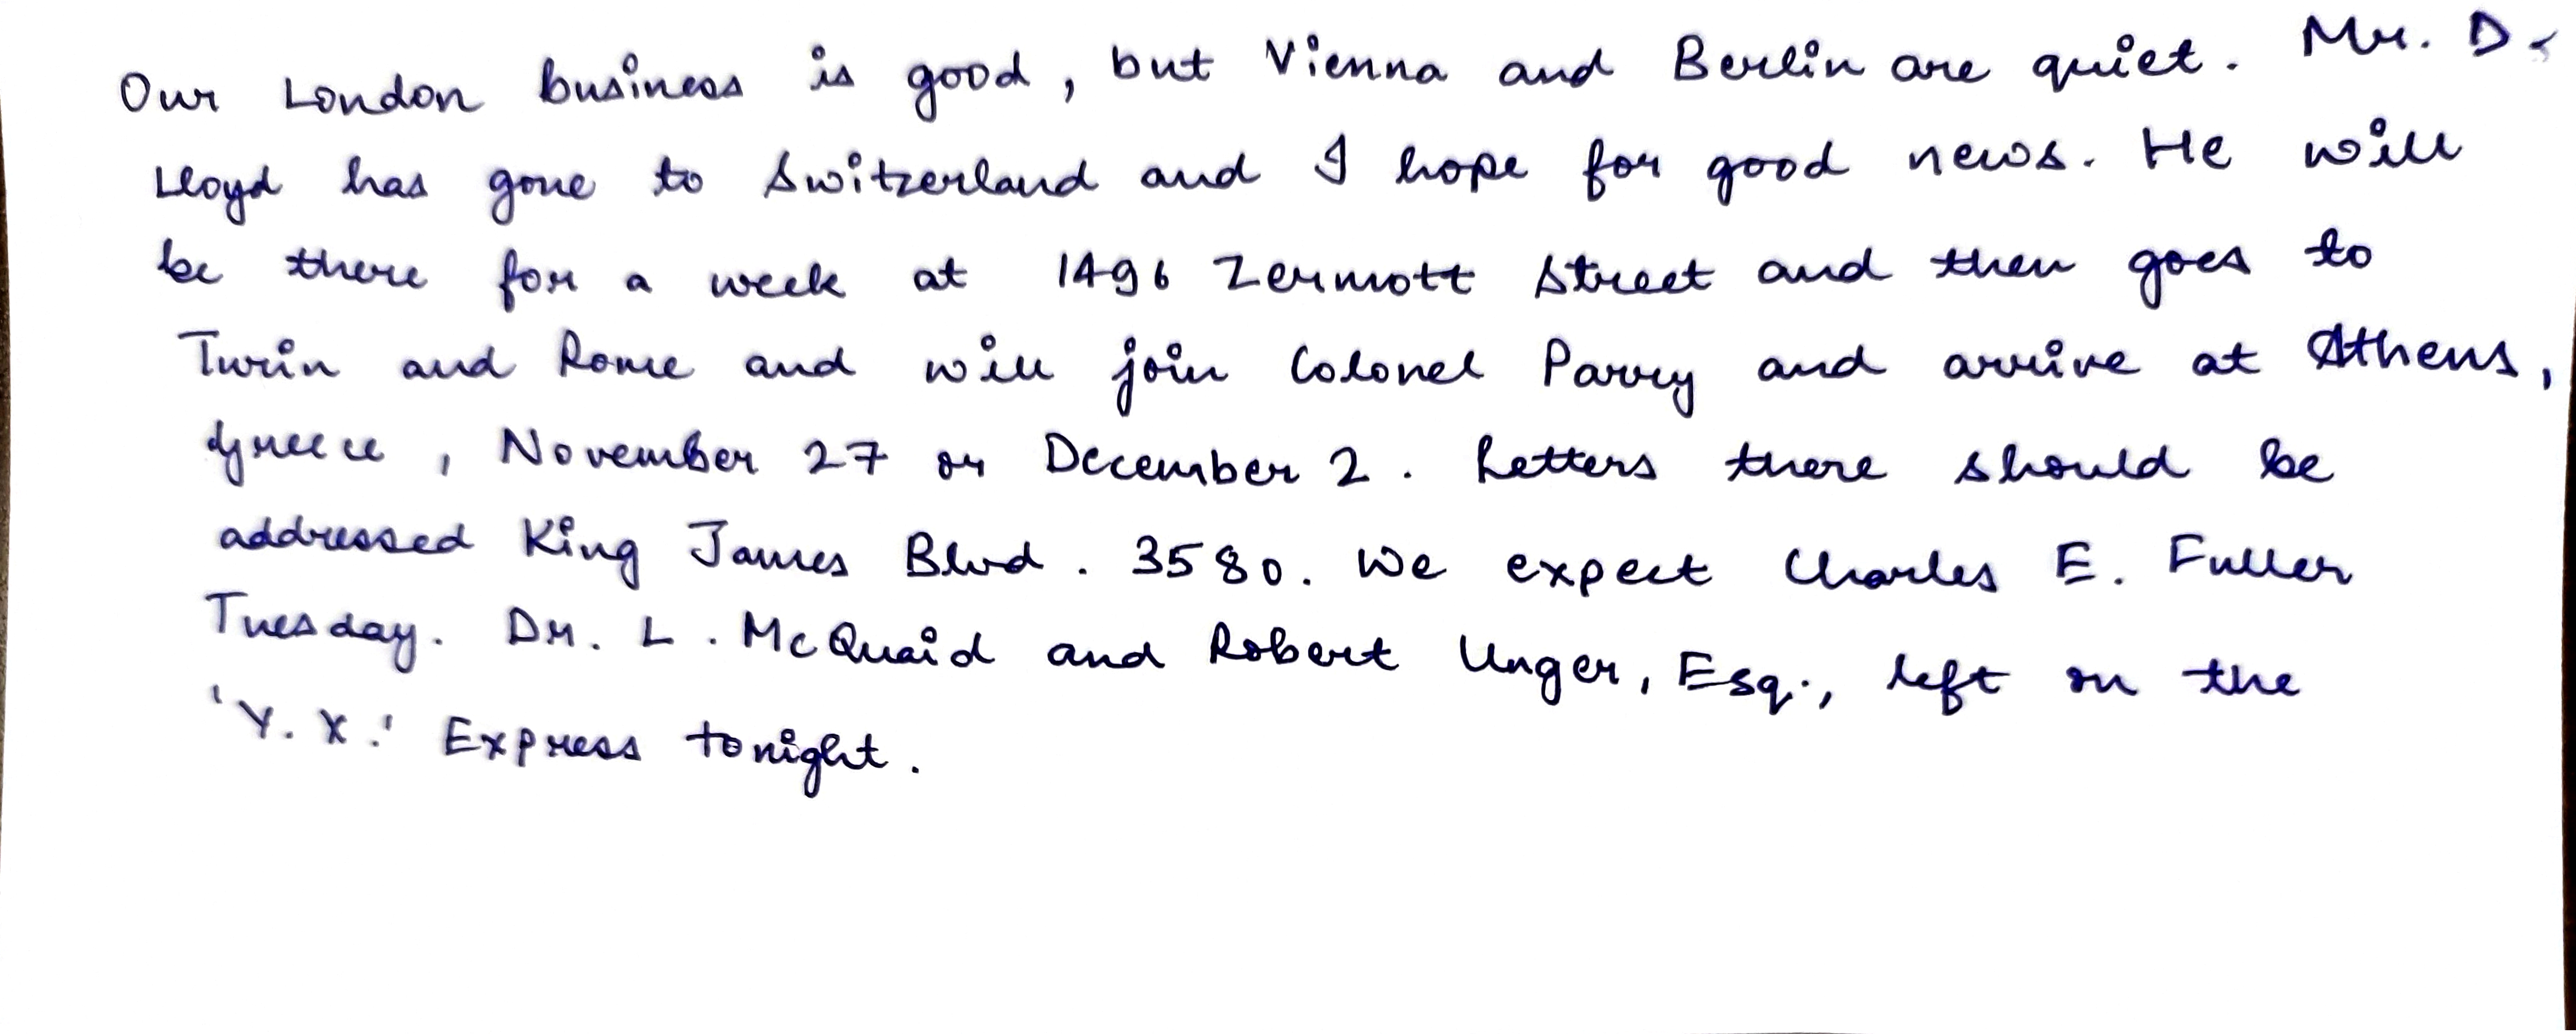 Our London business is good, but Vienna and Berlin are quiet. Mr. D.
Lloyd has gone to Switzerland and I hope for good news. He will
be there for a week at 1496 Zermott Street and then goes to
Turin and Rome and will join Colonel Parry and arrive at Athens,
Greece, November 27 or December 2. Letters there should be
addressed King James Blvd. 3580. We expect Charles E. Fuller
Tuesday. Dr. L. McQuaid and Robert Unger, Esq., left on the
'Y. X.' Express tonight.